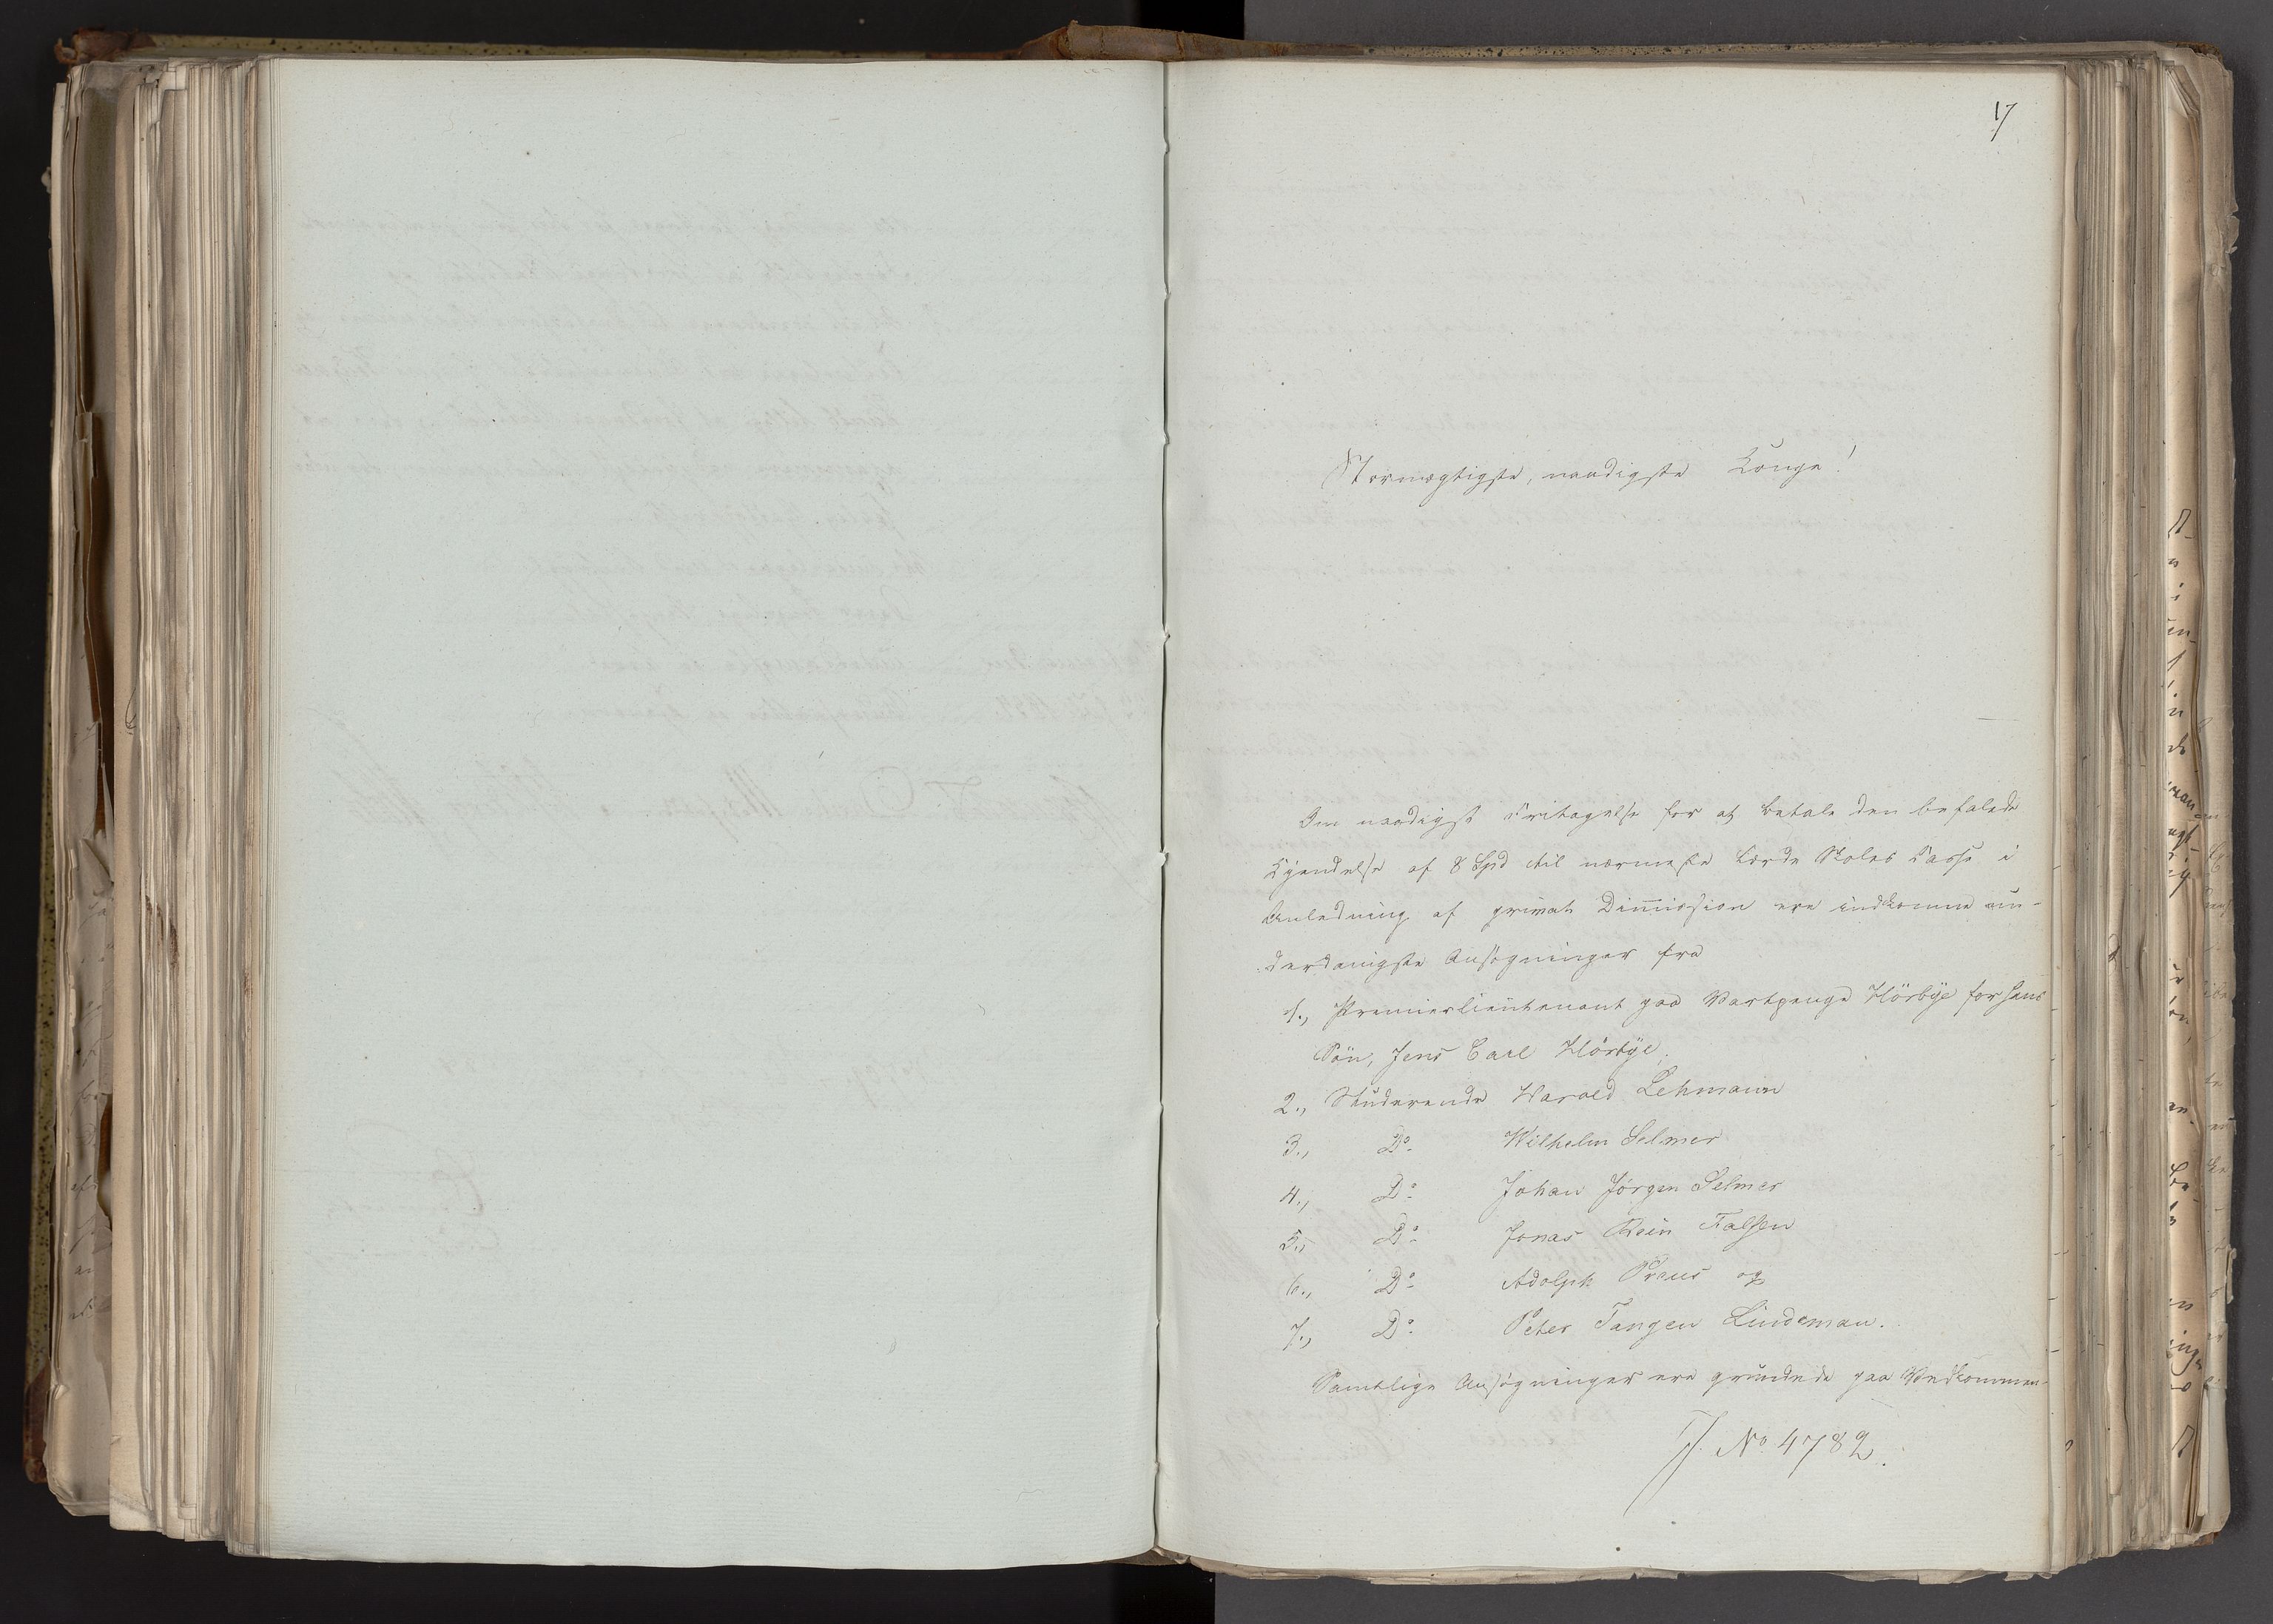 17
Stormægtigste, naadigste Konge!
Om naadigst Fritagelse for at betale den befalede
Kjendelse af 8 Spd til nærmeste lærde Skoles Casse i
Anledning af privat Dimission ere indkomne un-
derdanigste Ansøgninger fra
1., Premierlieutenant paa Vartpenge Hörbye for hans
Sön, Jens Carl Hörbÿe.
2., Studerende Harald Lehmann
3., Do Wilhelm Selmer
4., Do Johan Jörgen Selmer
5., Do Jonas Rein Falsen
6., Do Adolph Preus og
7., Do Peter Tangen Lindeman.
Samtlige Ansøgninger ere grundede paa Vedkommen-
J. No 4782.